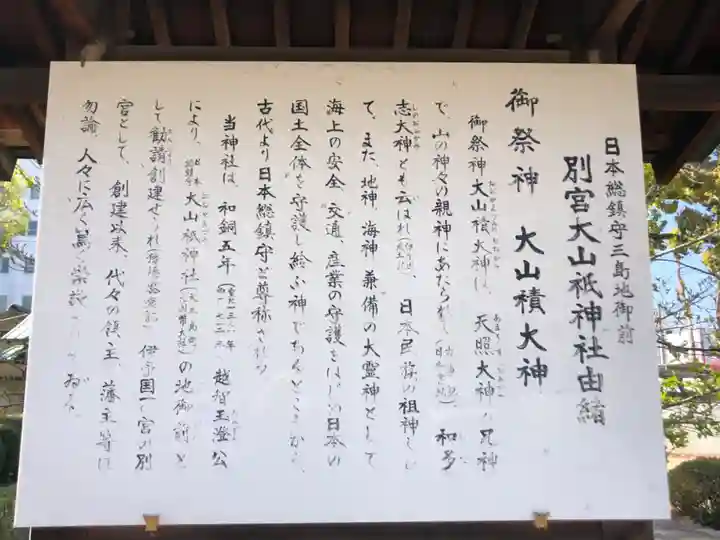 日本総鎮守三島地御前
別宮大山祇神社由緒
御祭神 大山積大神
御祭神大山積大神は、天照大神の兄神
で、山の神々の親神にあたられ、和多
志大神とも云はれ、日本民族の祖神とし
て、また、地神、海神兼備の大霊神として
海上の安全、交通、産業の守護をはじめ日本の
国土全体を守護し給ふ神であるところから、
古代より日本総鎮守と尊称される
当神社は、和銅五年 越智玉澄公
により、大山祇神社の地御前と
して勧請創建せられ 伊予国一の宮の別
宮として、創建以来、代々の領主、藩主等は
勿論、人々に広く